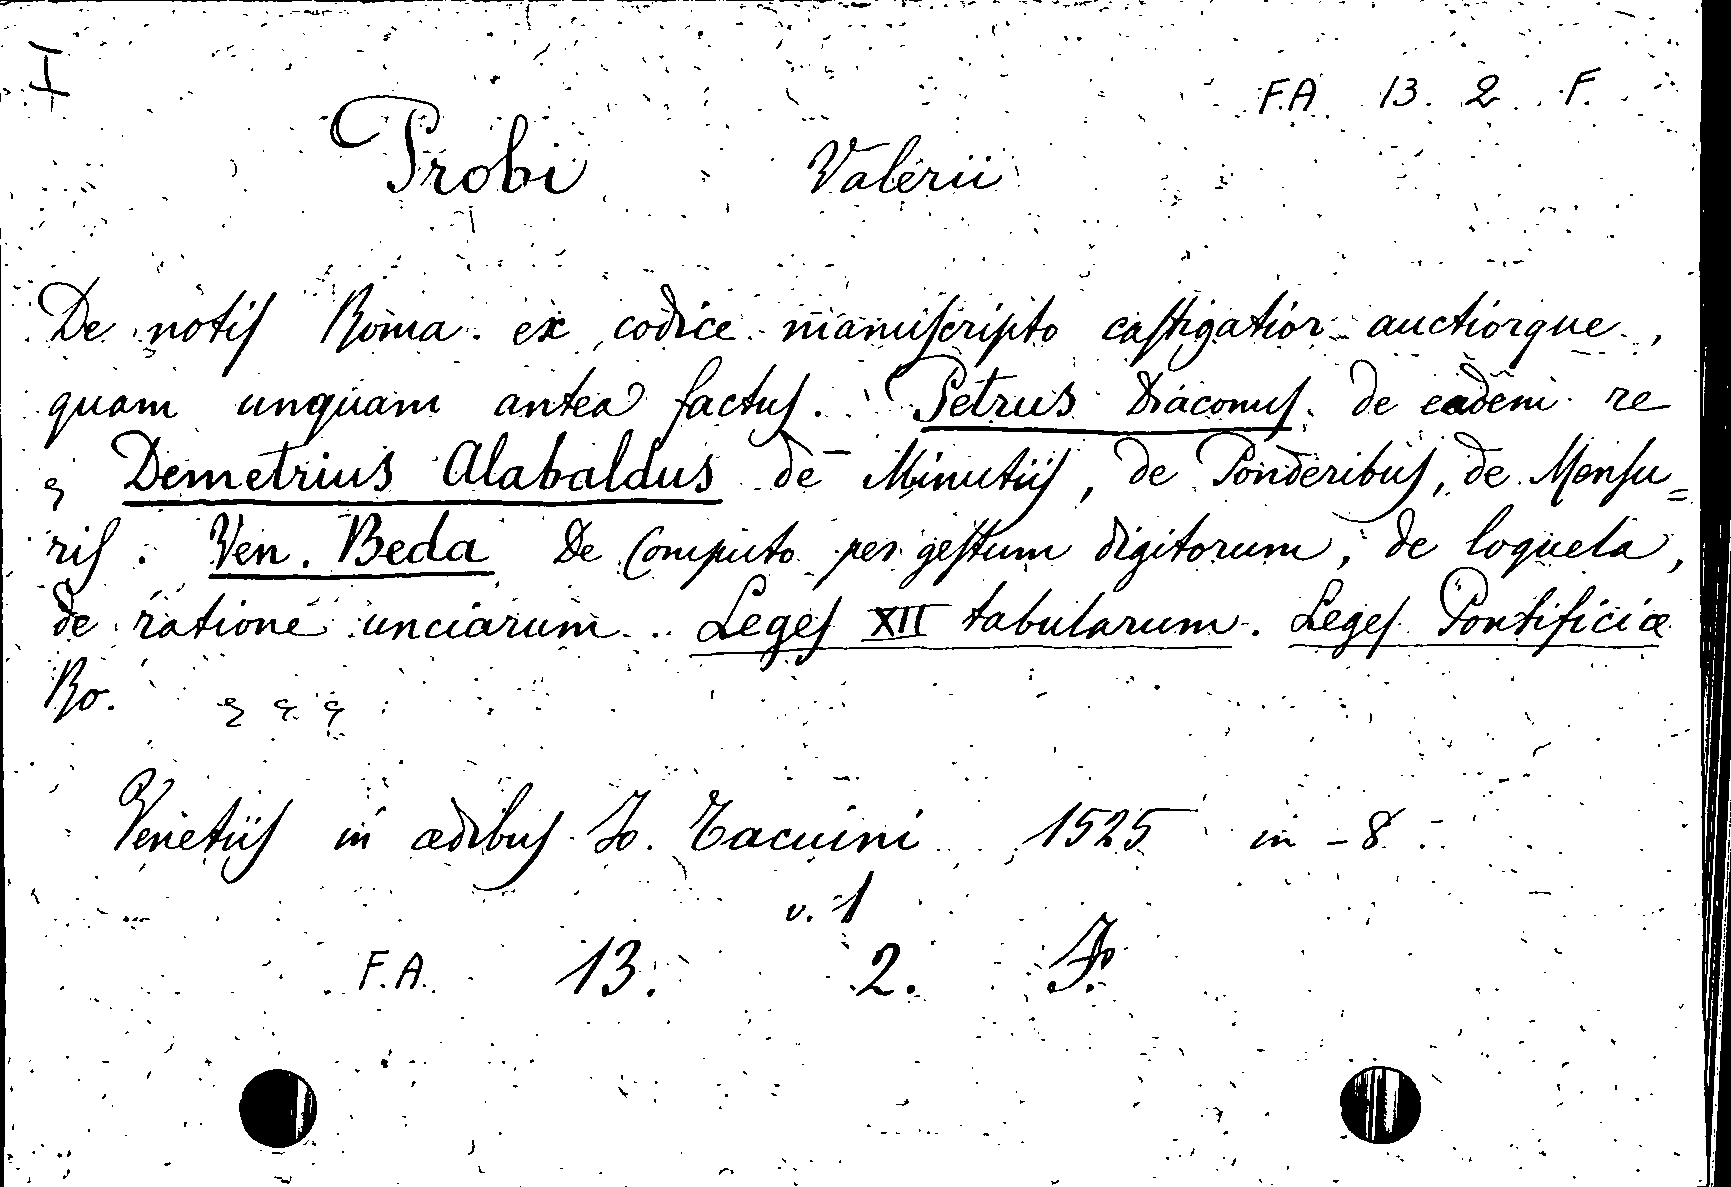 I
F.A. 13. 2. F.
Probi Valerii
De notiſ Roma. ex codice manuſcripto caſtigatior auctiorque,
quam unquam antea factuſ. Petrus Diaconuſ. de eadem re
& Demetrius Alabaldus de Minutiiſ, de Ponderibuſ, de Menſu=
riſ. Ven. Beda De Computo per geſtum digitorum, de loquela,
de ratione unciarum. Legeſ XII tabularum. Legeſ Pontificiæ
Ro. & & &
Venetiiſ in ædibuſ Jo. Tacuini 1525 in-8
v. 1
F.A. 13. 2. F.